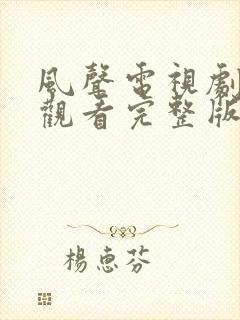 風聲電視劇
觀看完整版
楊惠芬